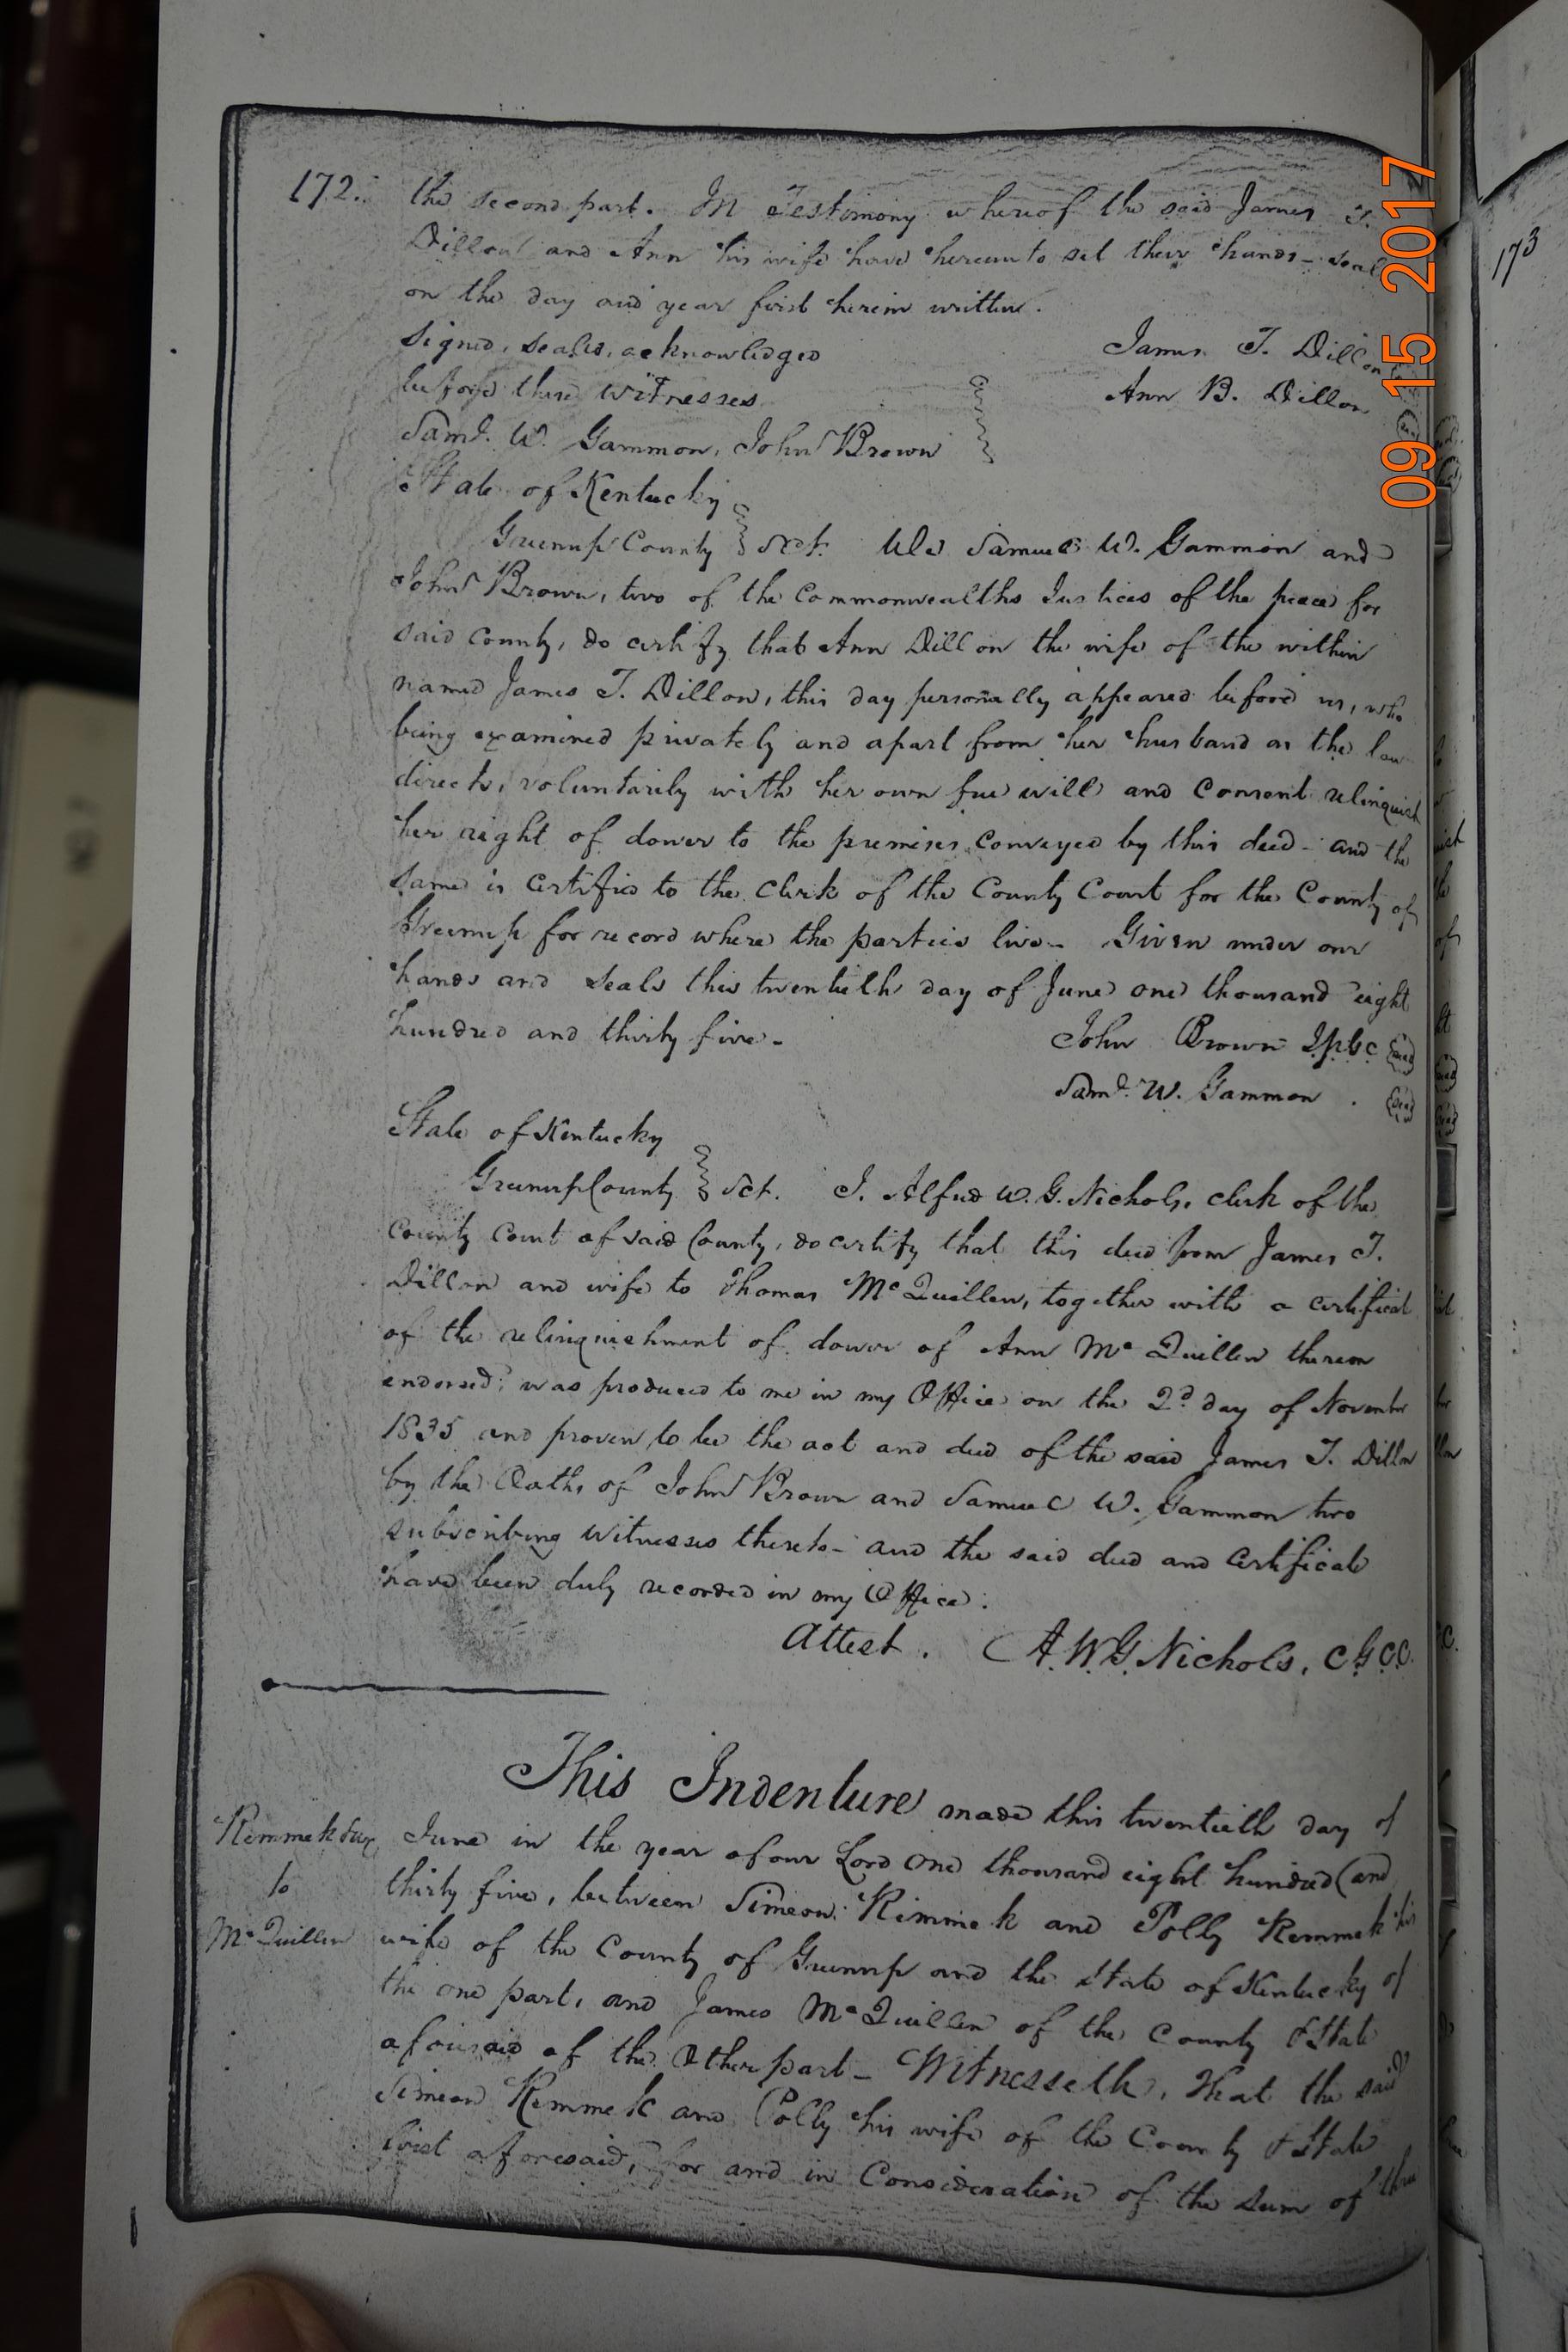 172. the second part. In Testimony whereof the said James T.
Dillon and Ann his wife have hereunto set their hands - seal
on the day and year first herein written.
Signed, sealed, acknowledged
before these witnesses
Saml. W. Gammon, John Brown
James T. Dillon
Ann B. Dillon
State of Kentucky
Greenup County Sct. We Samuel W. Gammon and
John Brown, two of the Commonwealths Justices of the peace for
said County, do certify that Ann Dillon the wife of the within
named James T. Dillon, this day personally appeared before us, who
being examined privately and apart from her husband as the law
directs, voluntarily with her own free will and Consent relinquish
her right of dower to the premises conveyed by this deed - and the
same is certified to the Clerk of the County Court for the County of
Greenup for record where the parties live - Given under our
hands and seals this twentieth day of June one thousand eight
hundred and thirty five -
John Brown Jpbc Seal
Saml. W. Gammon . Seal
State of Kentucky
Greenup County Sct. I, Alfred W. G. Nichols, clerk of the
County Court of said County, do certify that this deed from James T.
Dillon and wife to Thomas McQuillen, together with a certificate
of the relinquishment of dower of Ann McQuillen thereon
endorsed, was produced to me in my Office on the 2d day of November
1835 and proven to be the act and deed of the said James T. Dillon
by the Oaths of John Brown and Samuel W. Gammon two
subscribing Witnesses thereto - and the said deed and Certificate
have been duly recorded in my Office.
Attest. A. W. G. Nichols, C.G.C.C.
This Indenture made this twentieth day of
June in the year of our Lord One thousand eight hundred and
thirty five, between Simeon Kimmek and Polly Kemmek his
wife of the County of Greenup and the State of Kentucky of
the one part, and James McQuillen of the County & State
aforesaid of the Other part - Witnesseth, That the said
Simeon Kemmek and Polly his wife of the County & State
first aforesaid, for and in Consideration of the sum of three
Kemmek & ux
to
McQuillen
173
09 15 2017